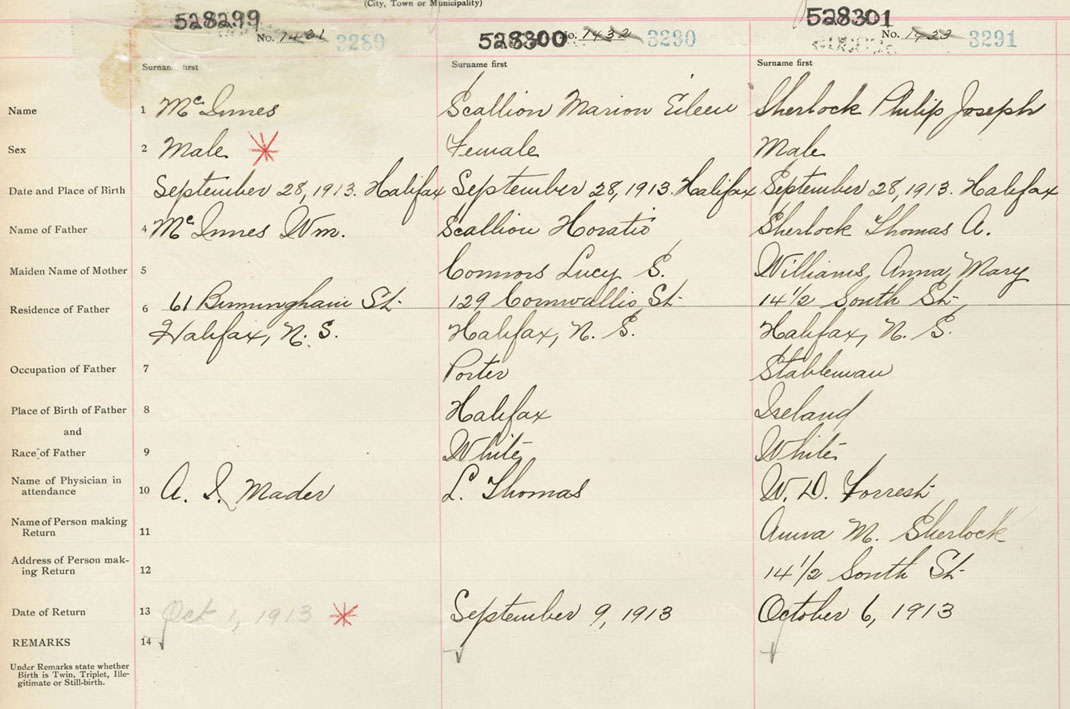 (City, Town or Municipality)
528299 528300 528301
No. 7431 3289 No. 7432 3290 No. 7433 3291
Surname first Surname first Surname first
Name 1 McInnes Scallion Marion Eileen Sherlock Philip Joseph
Sex 2 Male Female Male
Date and Place of Birth September 28, 1913. Halifax September 28, 1913. Halifax September 28, 1913. Halifax
Name of Father 4 McInnes Wm. Scallion Horatio Sherlock Thomas A.
Maiden Name of Mother 5 Connors Lucy S. Williams, Anna, Mary
Residence of Father 6 61 Birmingham St. 129 Cornwallis St. 14 1/2 South St.
Halifax, N. S. Halifax, N. S. Halifax, N. S.
Occupation of Father 7 Porter Stableman
Place of Birth of Father 8 Halifax Ireland
and
Race of Father 9 White White
Name of Physician in
attendance 10 A. I. Mader L. Thomas W. D. Forrest
Name of Person making
Return 11 Anna M. Sherlock
Address of Person mak-
ing Return 12 14 1/2 South St.
Date of Return 13 Oct 1, 1913 September 9, 1913 October 6, 1913
REMARKS 14
Under Remarks state whether
Birth is Twin, Triplet, Ille-
gitimate or Still-birth.